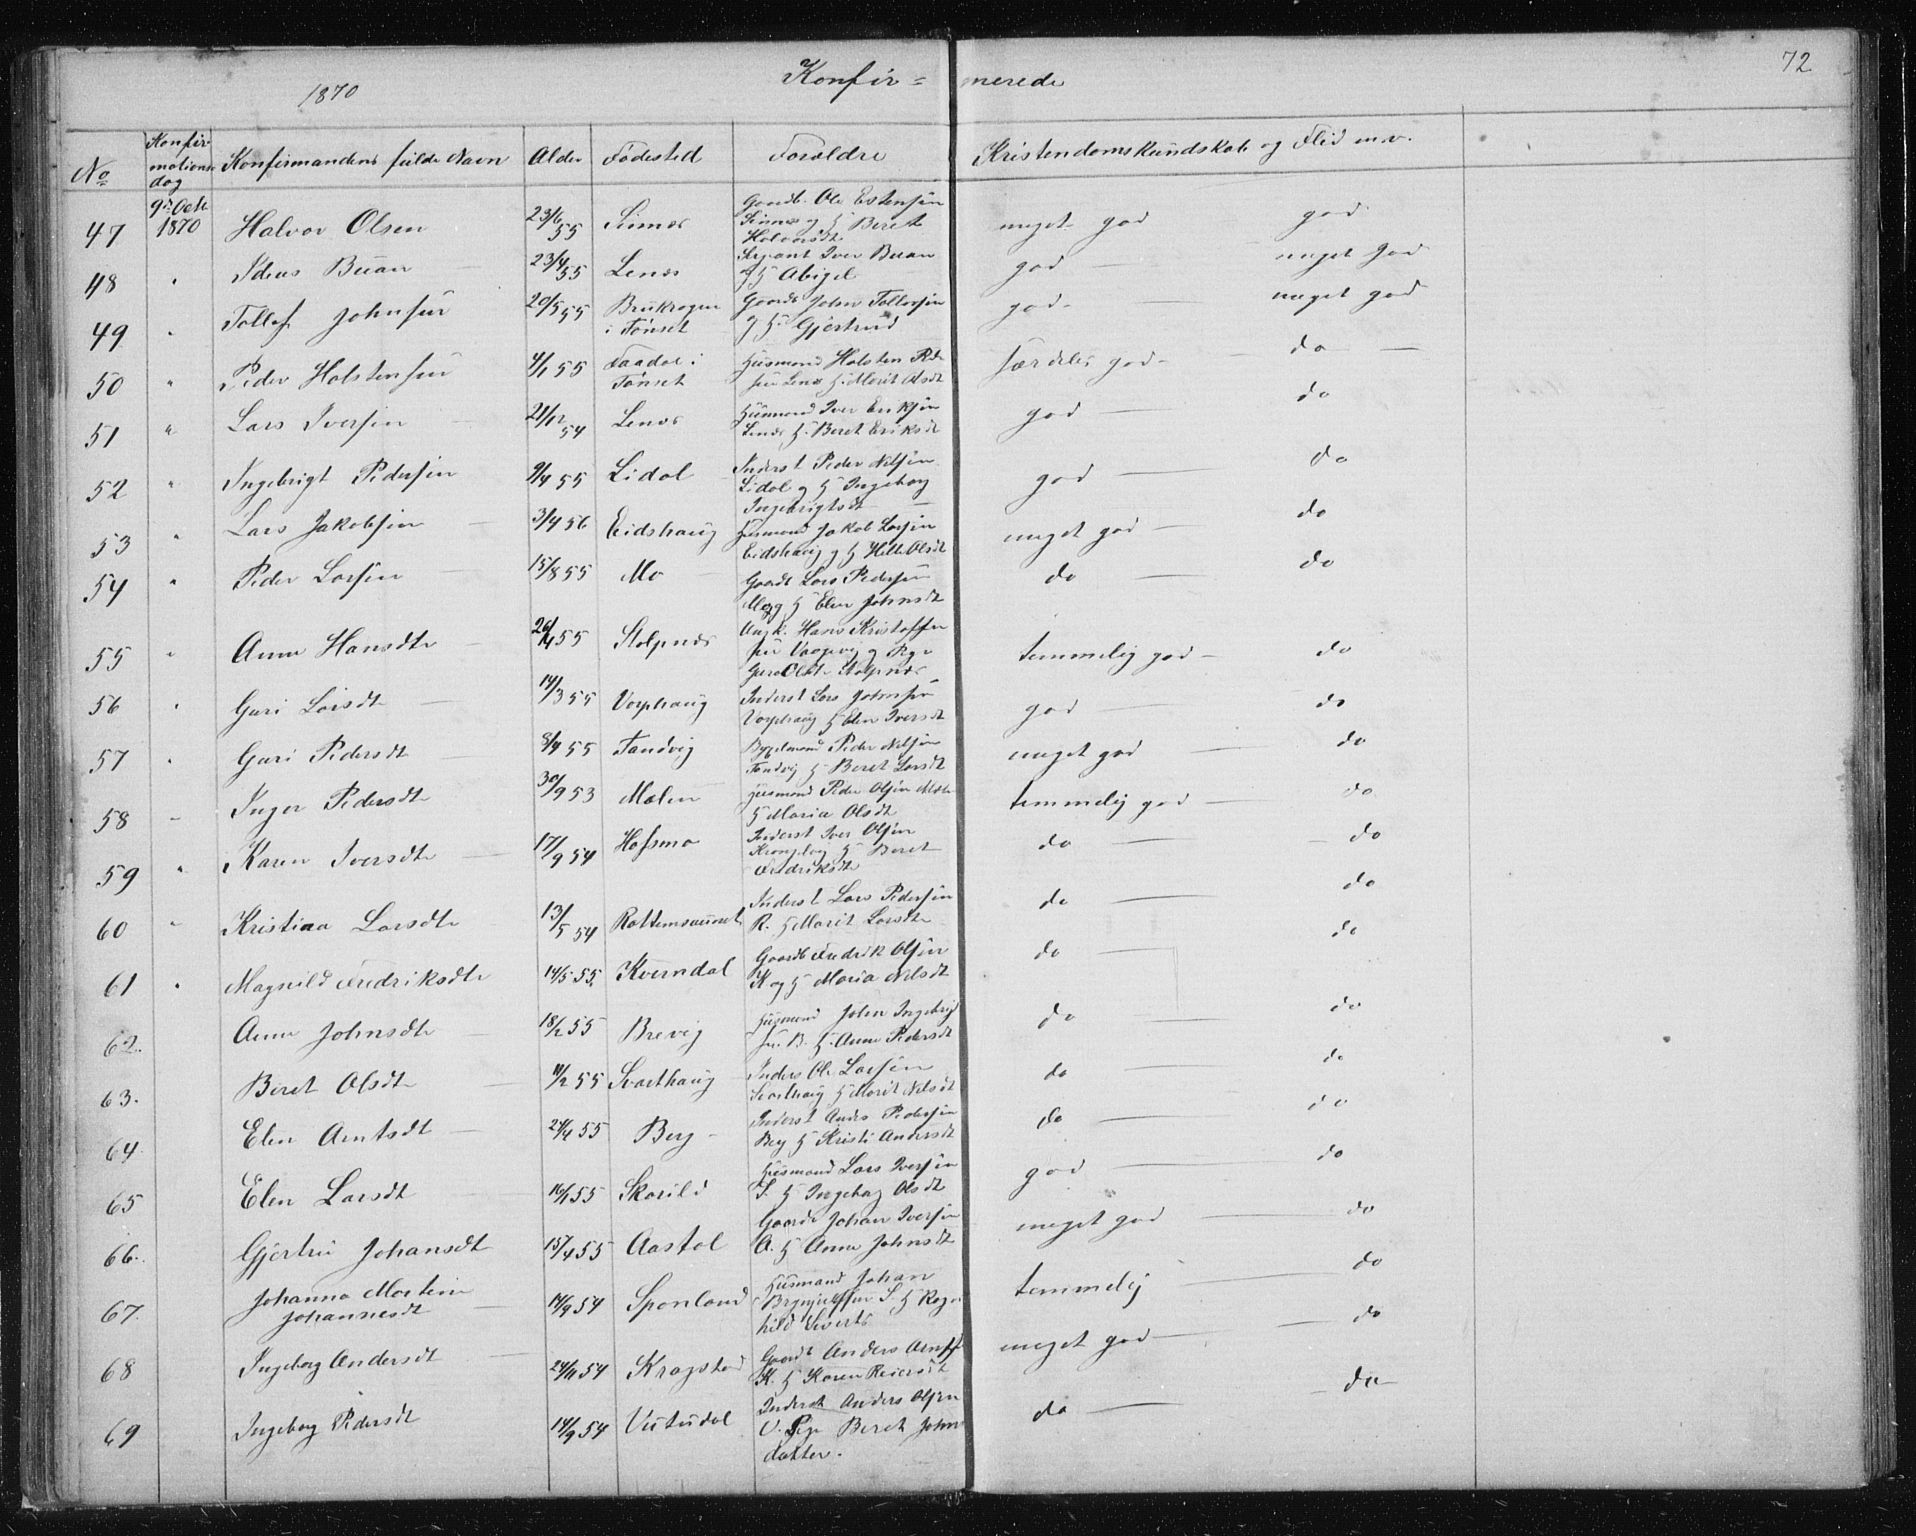 72
1870 Konfir= merede
No Konfirmationsdag Konfirmandens fulde Navn Alder Födested Forældre Kristendomskundskab og Flid m.v.
9de Octb. Gaardb. Ole Estensen
47 1870 Halvor Olsen 23/6 55 Sinnes Sinnes og H Beret meget god god
Halvorsdt
48 " Ideus Buan 23/4 55 Lenes Iver Buan god meget god
og H Abigel
49 " Tollef Johnsen 20/5 55 Brukrogen Gaardb John Tollefsen god meget god
i Tönset og H. Gjertrud
50 " Peder Holstensen 4/1 55 Taadal i Husmand Holsten Peder særdeles god do
Tönset sen Lenes H. Marit Olsdt
51 " Lars Iversen 21/12 54 Lenes Husmand Iver Eriksen god do
Lenes H. Beret Eriksdt
52 " Ingebrigt Pedersen 9/4 55 Lidal Inderst Peder Nilsen god do
Lidal og H Ingeborg
Ingebrigtsdt
53 " Lars Jakobsen 3/4 56 Eidshaug Husmand Jakob Larsen meget god do
Eidshaug og H Olsdt
54 " Peder Larsen 15/8 55 Mo Gaardb Lars Pedersen do do
Mo og H Elen Johnsdt
55 " Anne Hansdtr 26/4 55 Stolpnes Ungk. Hans Kristoffer temmelig god do
sen og Pige
Guro Olsdt Stolpnes
56 " Guri Larsdt 14/3 55 Vorphaug Inderst Lars Johnsen god do
Vorphaug H Elen Iversdt
57 " Guri Pedersdt 8/4 55 Tandvig Bygselmand Peder Nilsen meget god do
Tandvig H Beret Larsdt
58 " Inger Pedersdt 30/9 53 Melen Husmand Peder Olsen temmelig god do
H Maria Olsdt
59 " Karen Iversdtr 17/9 54 Hofsmo Inderst Iver Olsen do do
H Beret
Fredriksdt
60 " Kristina Larsdtr 13/5 54 Rottemsaunet Inderst Lars Pedersen do do
R. H Marit Larsdtr
61 " Magnild Fredriksdtr 14/5 55. Kverndal Gaardb Fredrik Olsen do do
K og H Maria Nilsdt
62. Anne Johnsdtr 18/2 55 Brevig Husmand John Ingebrigt do do
sen. B. H. Anne Pedersdt
63. Beret Olsdt 11/2 55 Svarthaug Inders Ole Larsen do do
Svarthaug H Marit Nilsdt
64. Elen Arntsdt 24/4 55 Berg Inderst Pedersen do do
Berg H Kristi Andersdt
65 Elen Larsdt 16/1 55 Skarild Husmand Lars Iversen god do
S. H Ingeborg Olsdt
66. Gjertru Johansdt 15/4 55 Aastol Gaardb Johan Iversen meget god do
A. H Anne Johnsdt
67. Johanna Martine 14/9 54 Sponland Husmand Johan temmelig do
Johannesdt Brynjulfsen S. H Ragn
hild Siverts
68 Ingeborg Andersdt 24/11 54 Kragstad Gaardb Anders meget god do
K. H Karen Reiersdt
69 Ingeborg Pedersdt 14/9 54 Vutudal Inderst Anders Olsen do do
V. Pige Beret Johns
datter.